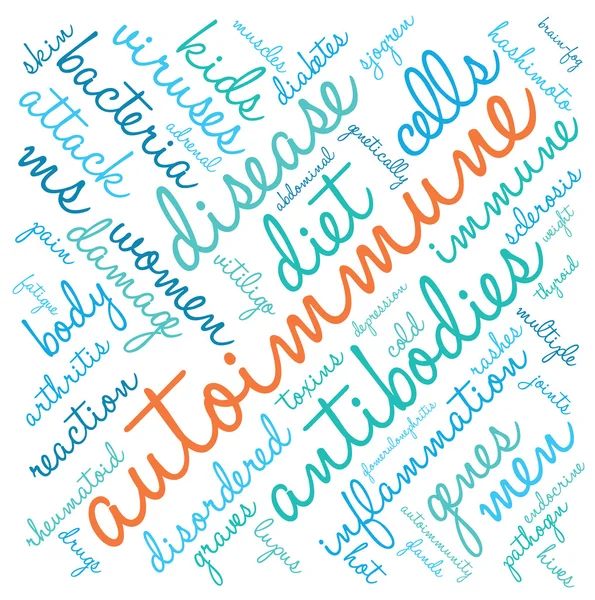 skin
viruses
kids
muscles
diabetes
sjogren
brain-fog
bacteria
hashimoto
attack
adrenal
disease
genetically
cells
ms
abdominal
diet
autoimmune
immune
pain
damage
women
vitiligo
sclerosis
weight
fatigue
body
depression
cold
antibodies
thyroid
arthritis
toxins
rashes
multiple
reaction
joints
glomerulonephritis
inflammation
rheumatoid
disordered
genes
men
drugs
graves
lupus
hot
autoimmunity
glands
endocrine
pathogen
hives